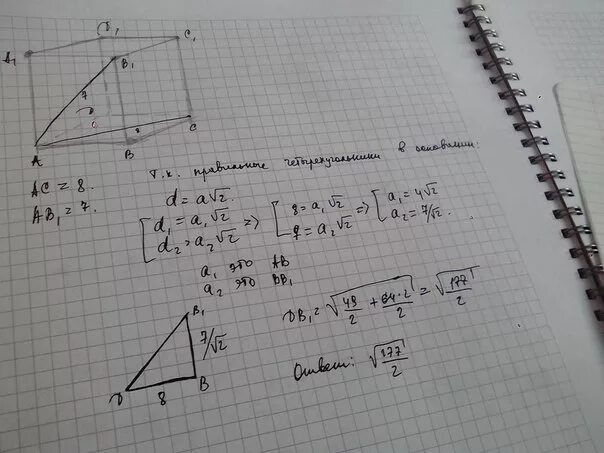 D₁
C₁
A₁
B₁
7
D
8
A
B
C
AC = 8.
AB₁ = 7.
Т.к. правильные четырехугольники в основании:
d = a√2
[ d₁ = a₁√2 => [ 8 = a₁√2 => [ a₁ = 4√2
d₂ = a₂√2 7 = a₂√2 a₂ = 7/√2.
a₁ это AB
a₂ это BB₁
B₁
7/√2
D 8 B
DB₁ = √(49/2 + 64·2/2) = √177/2
Ответ: √177/2